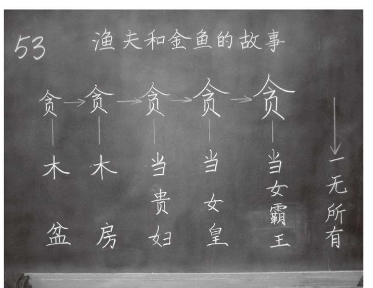 53 渔夫和金鱼的故事
贪→贪→贪→贪→贪
木盆
木房
当贵妇
当女皇
当女霸王
一无所有